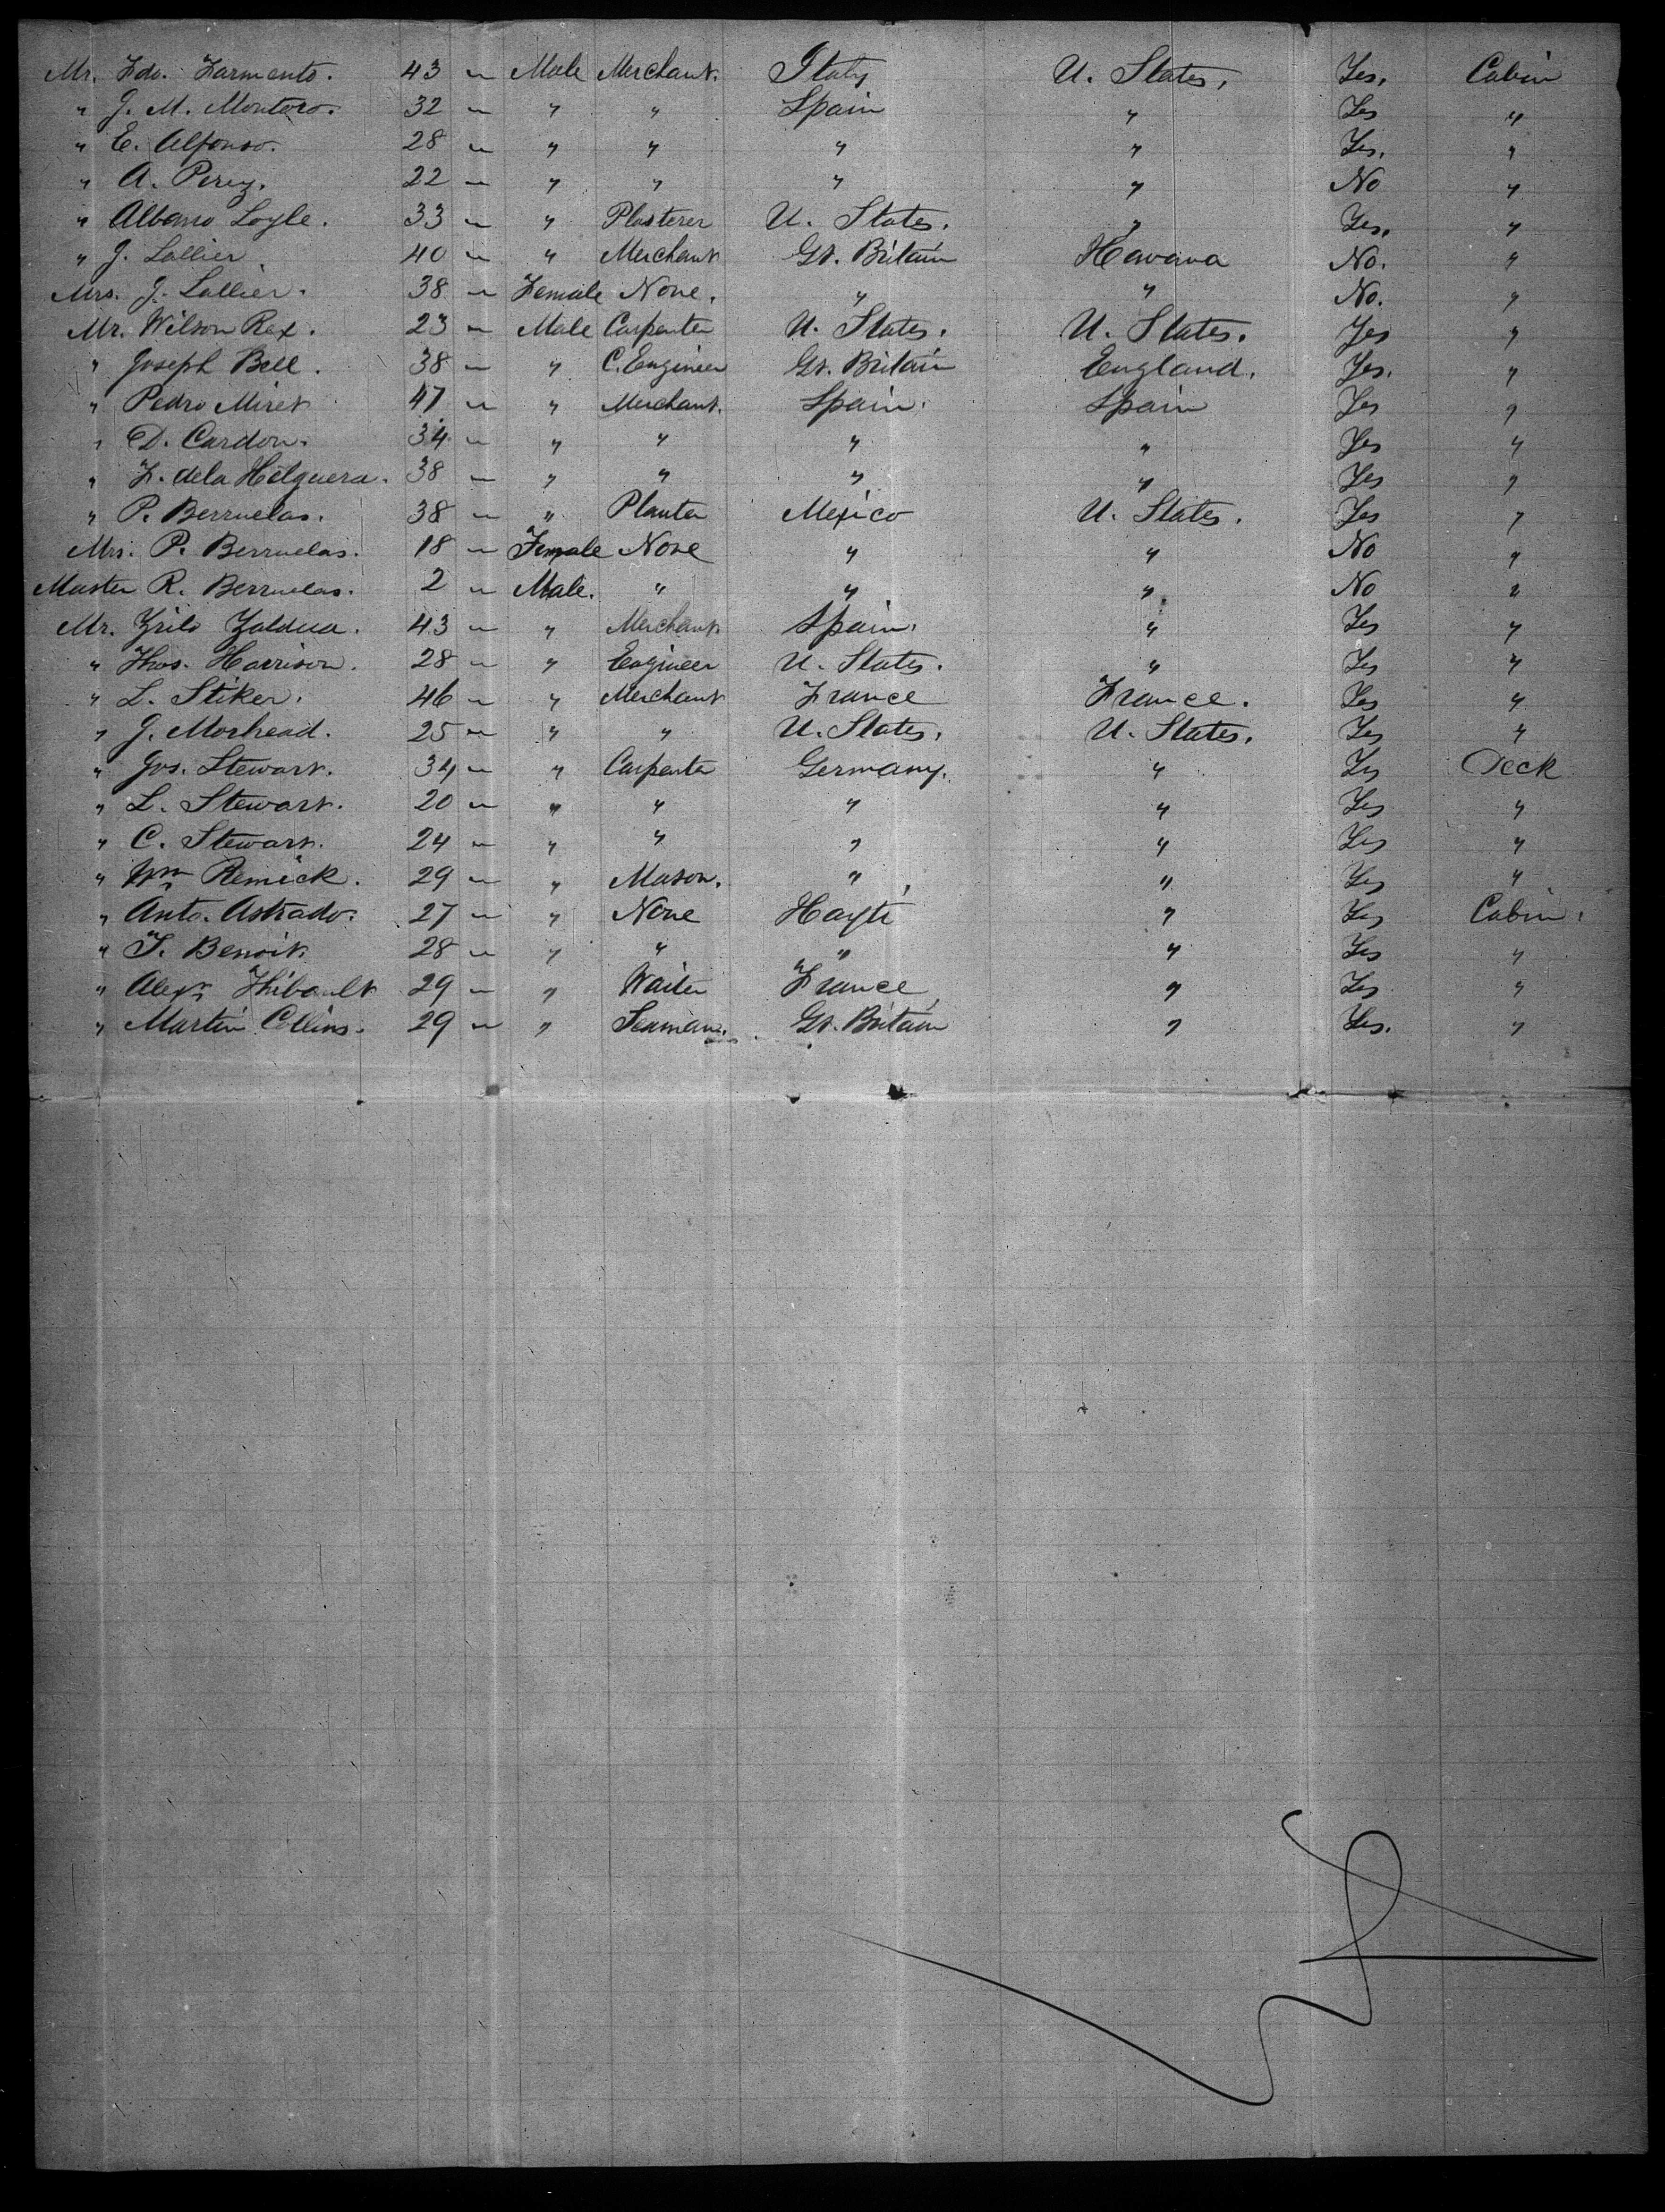 Mr. Fdo. Farmento. 43 " Male Merchant. Italy U. States, Yes, Cabin
" J. M. Montoro. 32 " " " Spain " Yes "
" E. Alfonso. 28 " " " " " Yes. "
" A. Perez. 22 " " " " " No "
" Albano Loyle. 33 " " Plasterer U. States. " Yes. "
" J. Lallier. 40 " " Merchant Gt. Britain Havana No. "
Mrs. J. Lallier. 38 " Female None. " " No. "
Mr. Wilson Rex. 23 " Male Carpenter U. States. U. States. Yes "
" Joseph Bell. 38 " " C. Engineer Gt. Britain England. Yes. "
" Pedro Miret 47 " " Merchant. Spain. Spain Yes "
" D. Cardon. 34 " " " " " Yes "
" F. de la Helguera. 38 " " " " " Yes "
" P. Berruelas. 38 " " Planter Mexico U. States. Yes "
Mrs. P. Berruelas. 18 " Female None " " No "
Master R. Berruelas. 2 " Male. " " " No "
Mr. Zaldua. 43 " " Merchant Spain. " Yes "
" Thos. Harrison. 28 " " Engineer U. States. " Yes "
" L. Stiker. 46 " " Merchant France France. Yes "
" J. Morhead. 25 " " " U. States. U. States. Yes "
" Jos. Stewart. 34 " " Carpenter Germany. " Yes Deck
" L. Stewart. 20 " " " " " Yes "
" C. Stewart. 24 " " " " " Yes "
" Wm Remick. 29 " " Mason. " " Yes "
" Anto. Astrado. 27 " " None Hayti " Yes Cabin.
" T. Benoit 28 " " " " " Yes "
" Alexr Thibault 29 " " Waiter France " Yes "
" Martin Collins. 29 " " Seaman. Gt. Britain " Yes. "